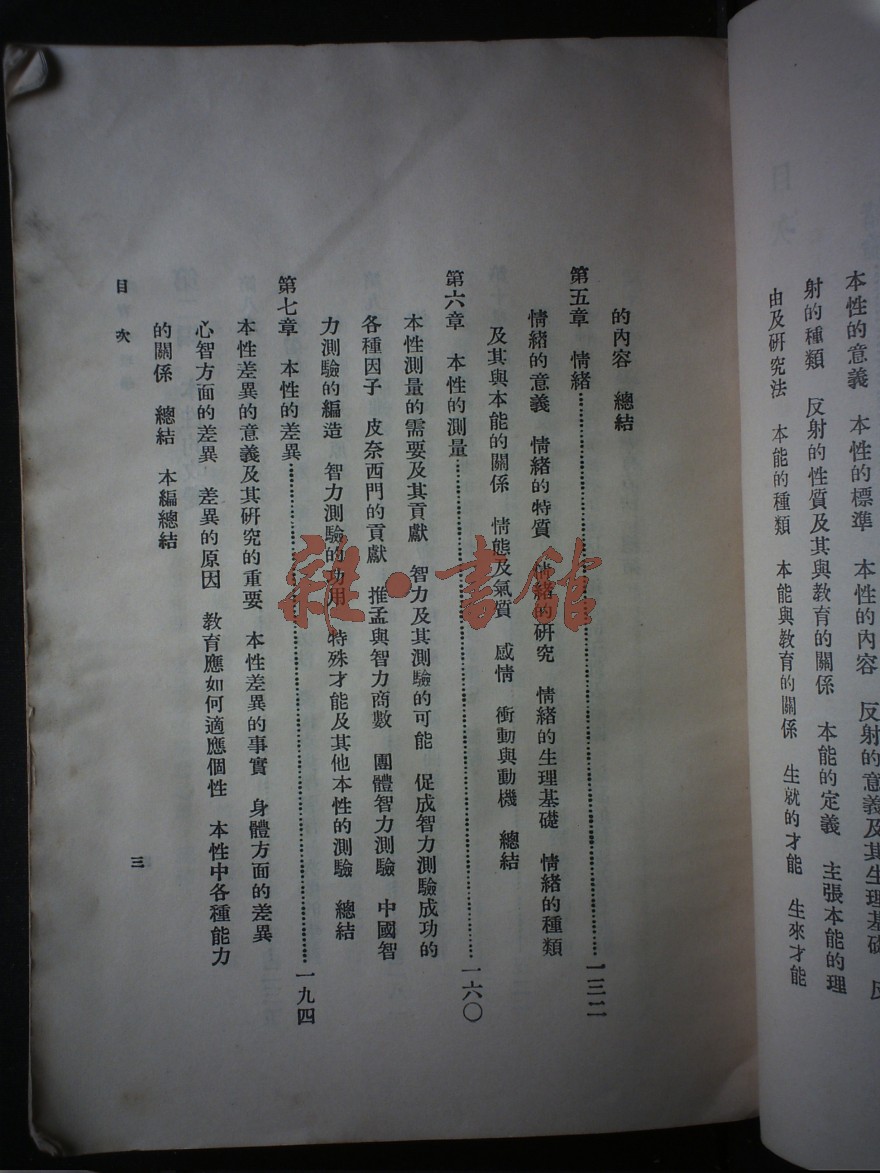 本性的意義　本性的標準　本性的內容　反射的意義及其生理基礎　反
射的種類　反射的性質及其與教育的關係　本能的定義　主張本能的理
由及研究法　本能的種類　本能與教育的關係　生就的才能　生來才能
的內容　總結
第五章　情緒…………一三二
情緒的意義　情緒的特質　情緒的研究　情緒的生理基礎　情緒的種類
及其與本能的關係　情態及氣質　感情　衝動與動機　總結
第六章　本性的測量…………一六〇
本性測量的需要及其貢獻　智力及其測驗的可能　促成智力測驗成功的
各種因子　皮奈西門的貢獻　推孟與智力商數　團體智力測驗　中國智
力測驗的編造　智力測驗的功用　特殊才能及其他本性的測驗　總結
第七章　本性的差異…………一九四
本性差異的意義及其研究的重要　本性差異的事實　身體方面的差異
心智方面的差異　差異的原因　教育應如何適應個性　本性中各種能力
的關係　總結　本編總結
目次
三
雜·書館